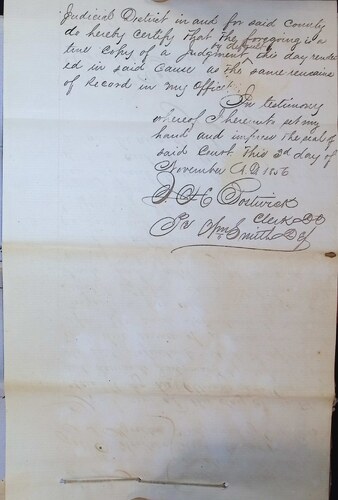 Judicial District in and for said County
do hereby certify that the foregoing is a
true copy of a Judgment by default this day render
ed in said Cause as the same remains
of Record in my Office.
In testimony
whereof I hereunto set my
hand and impress the seal of
said Court this 3d day of
November A.D. 1856
Bostwick
Clerk DC
Wm Smith Dy